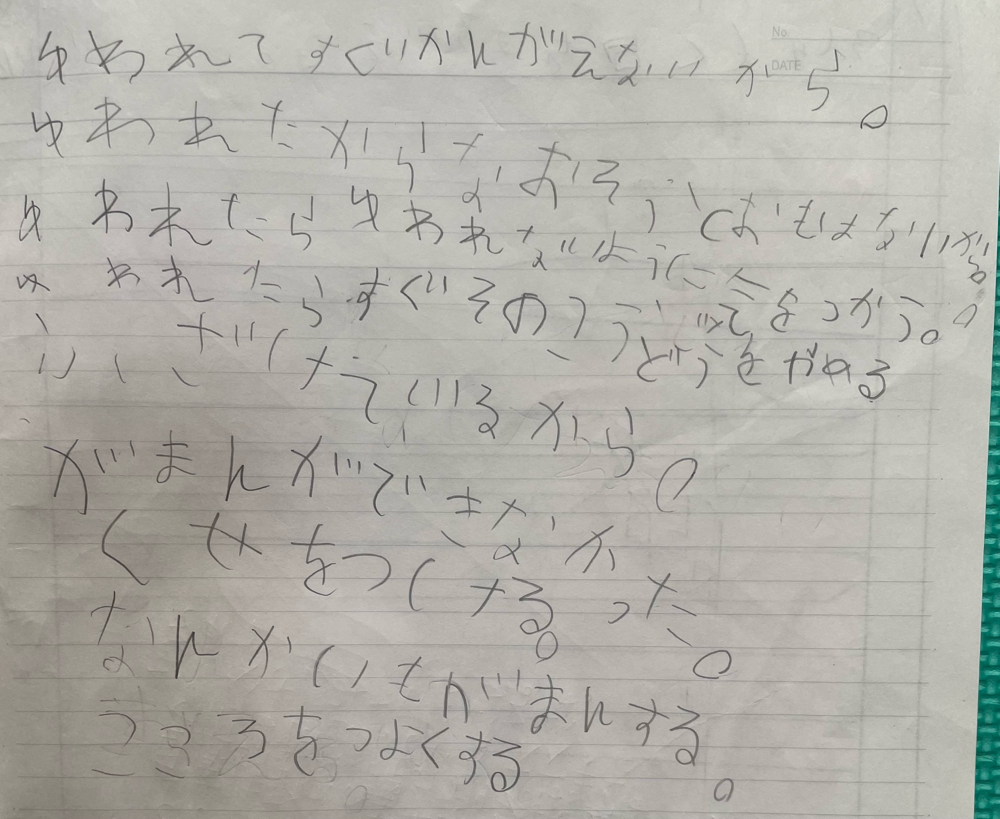 No.
DATE
ゆわれてすぐかんがえないから。
ゆわれたからなおそうとおもはないから。
ゆわれたらゆわれないように
ゆわれたらすぐそのこうどうをやめる
ふざけているから。
がまんができなかった。
くせをつける。
なんかいもがまんする。
こころをつよくする